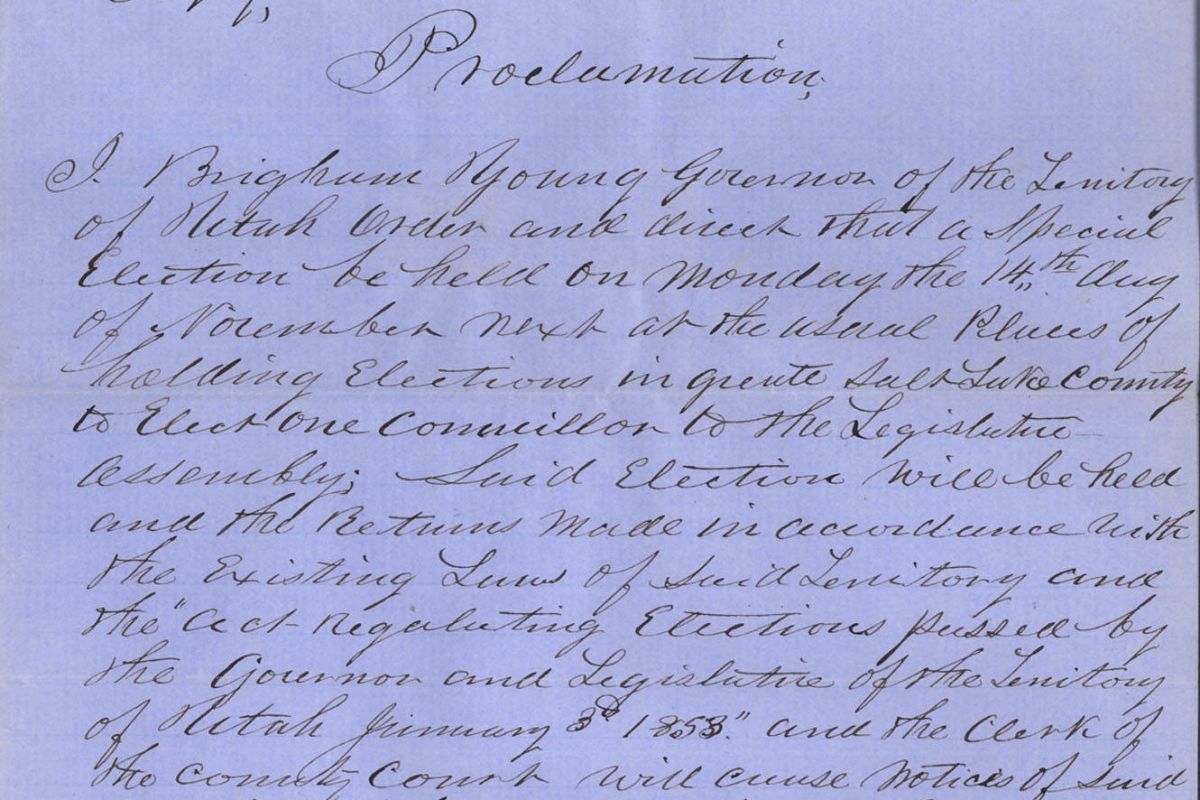 Proclamation,
I. Brigham Young Governor of the Territory
of Utah Order and direct that a Special
Election be held on Monday the 14,,th day
of November next at the usual Places of
holding Elections in greate Salt Lake County
to Elect One Councillor to the Legislative
Assembly; Said Election Will be held
and the Returns Made in accordance With
the Existing Laws of Said Territory and
the "Act Regulating Elections passed by
the Governor and Legislative of the Territory
of Utah January 3d 1853." and the Clerk of
the County Court Will cause Notices of Said